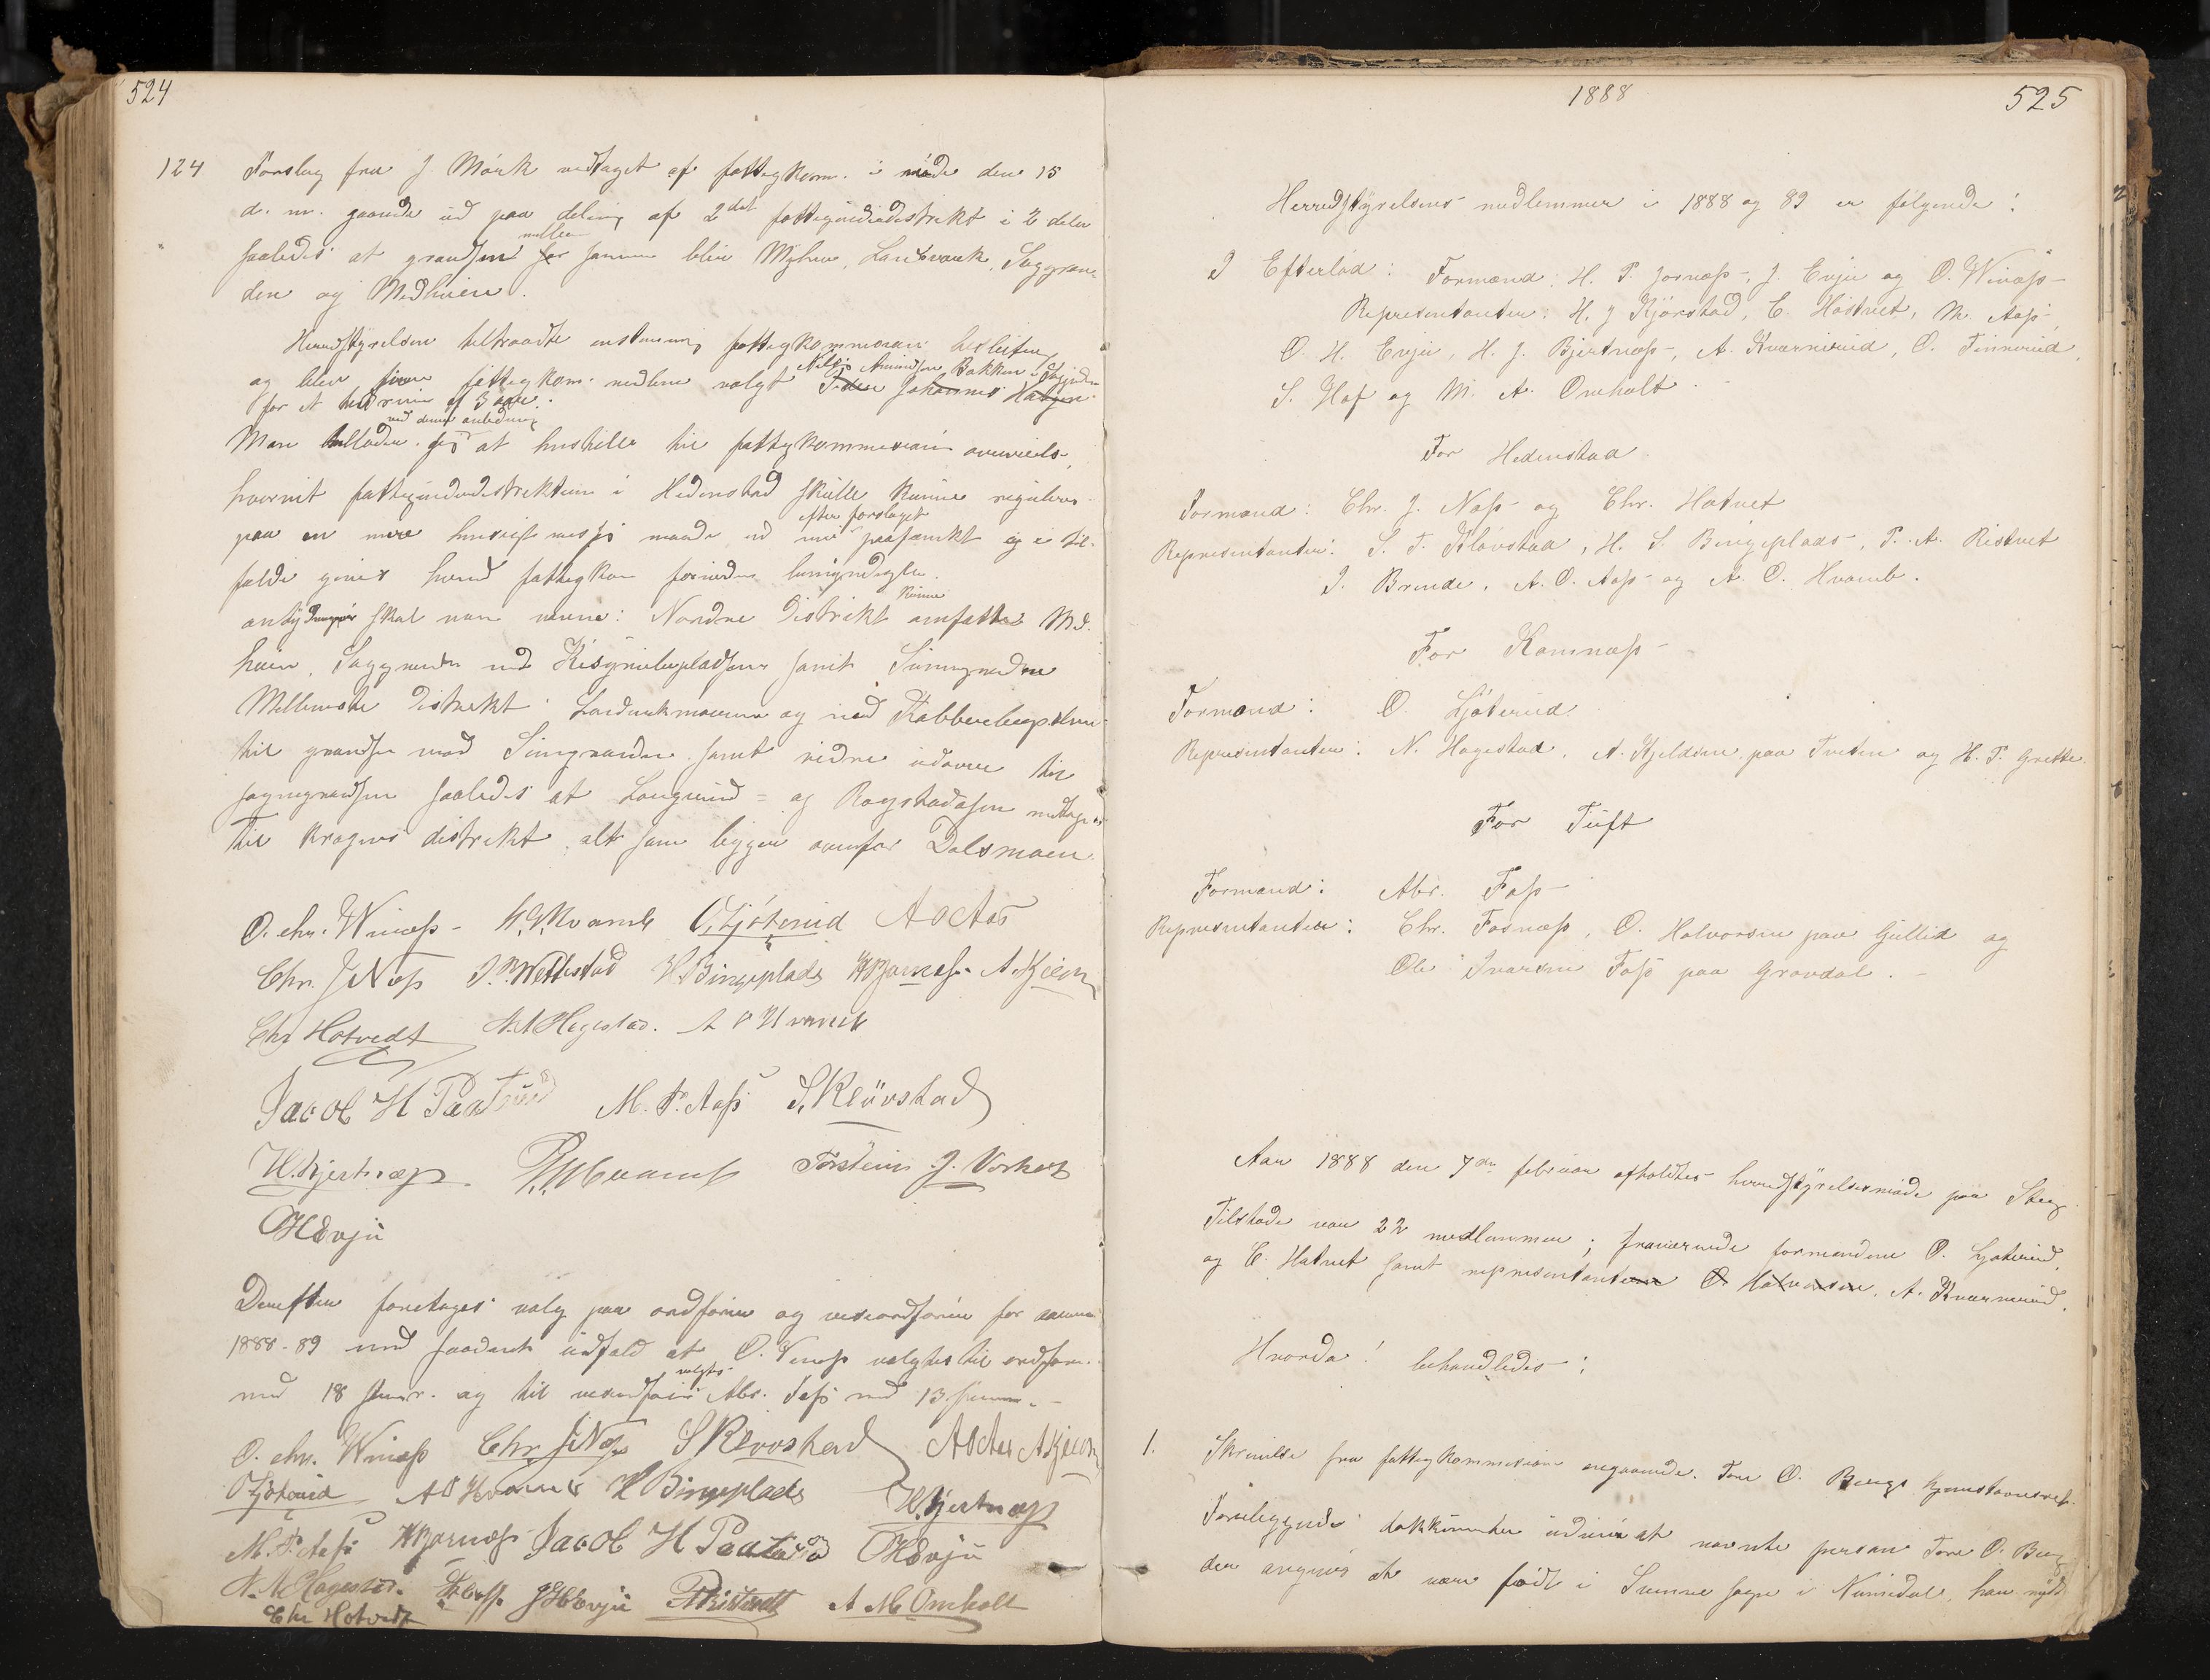 524
124 Forslag fra J. Mørk vedtaget af fattigkom. i møde den 15
d. m. gaaende ud paa deling af 2det fattigunderdistrikt i 2 dele
saaledes at grændsen mellem samme blir Myhre, Landværk, Saggren-
den og Medhuien.
Herredstyrelsen tiltraadte enstemmig fattigkommesions beslutning
og blev som fattigkom. medlem valgt Nils Amundsen Bakken
for et tidsrum af 3 aar.
Man tillader sig ved denne anledning at henstille til fattigkommesionen
hvorvit fattigunderdistrikterne i Hedenstad skulle kunne reguleres
paa en mere hensigtsmessig maade end efter forslaget paatænkt og i til-
fælde gives herred fattigkom fornøden
skal man nævne: Nordre Distrikt kunne omfatte Med-
huien, Saggrenden med samt Svinegrenden
Mellemste Distrikt:
til grændsen mod Svinegrenden samt videre udover til
sognegrændsen saaledes at Langerud- og Ragstadaasen medtages
Til Kragens distrikt alt som ligger ovenfor Dalsmoen.
O. Chr. Winæss - O. Ljøterud A O Aas
Chr. J Næss J. Wettestad H. Bingeplads H P Jornæss A. Kjelsen
Chr Hotvedt N. N Hagestad. A O Hvamb
Jacob H Paaterud M. P. Aass S. Kløvstad
H. Bjertnæs Torstein J. Vorket
O H Evju
Derefter foretoges valg paa ordfører og viseordfører for aarene
1888-89 med saadant udfald at O. Vinæss valgtes til ordfører
med 18 stemr. og til viseordfører valgtes Abr. Foss med 13 stemmer. -
O. Chr. Winæss Chr. J Næss S Kløvstad A O Aas A Kjelsen
O Ljøterud A O Hvamb H Bingeplads H. Bjertnæs
M. P. Aass H P Jornæss Jacob H Paaterud O H Evju
N. N Hagestad. A Foss J H Evju P A Ristvedt A M Omholt
Chr Hotvedt
1888
525
Herredstyrelsens medlemmer i 1888 og 89 er følgende:
I Efterløt: Formænd: H. P. Jornæss -, J. Evju og O. Winæss -
Representanter: H. J Kjørstad, C. Hostvet, M. Aass,
O. H. Evju, H. J. Bjertnæss -, A. Kværnerud, O. Tinnerud,
S. Hof og M. A. Omholt.
For Hedenstad.
Formænd: Chr. J. Næss og Chr. Hotvet
Representanter: S. T. Kløvstad, H. S. Bingeplads -, P. A. Ristvet
I. Brende, A. O. Aass og A. O. Hvamb.
For Komnæss -
Formænd: O. Ljøterud
Representanter: N. Hagestad, A. Kjeldsen paa Tveten og H. P. Grette.
For Tuft
Formænd: Abr. Foss -
Representanter: Chr. Fosnæss, O. Halvorsen paa Gullid og
Ole Ivarsen Foss paa Gravdal. -
Aar 1888 den 7de februar afholdtes herredstyrelsesmøde paa Steg.
Tilstede var 22 medlemmer; fraværende formændene O. Ljøterud,
og C. Hotvet samt representanterne O. Halvorsen, A. Kværnerud.
Hvorda! behandledes:
1. Skrivelse fra fattigkommesionen angaaende Tore O. Bergs hjemstavnsret.
Foreliggende dokkumenter udviser at nævnte person Tore O. Berg
der angives at være født i Svenne sogn i Numedal, har nydt